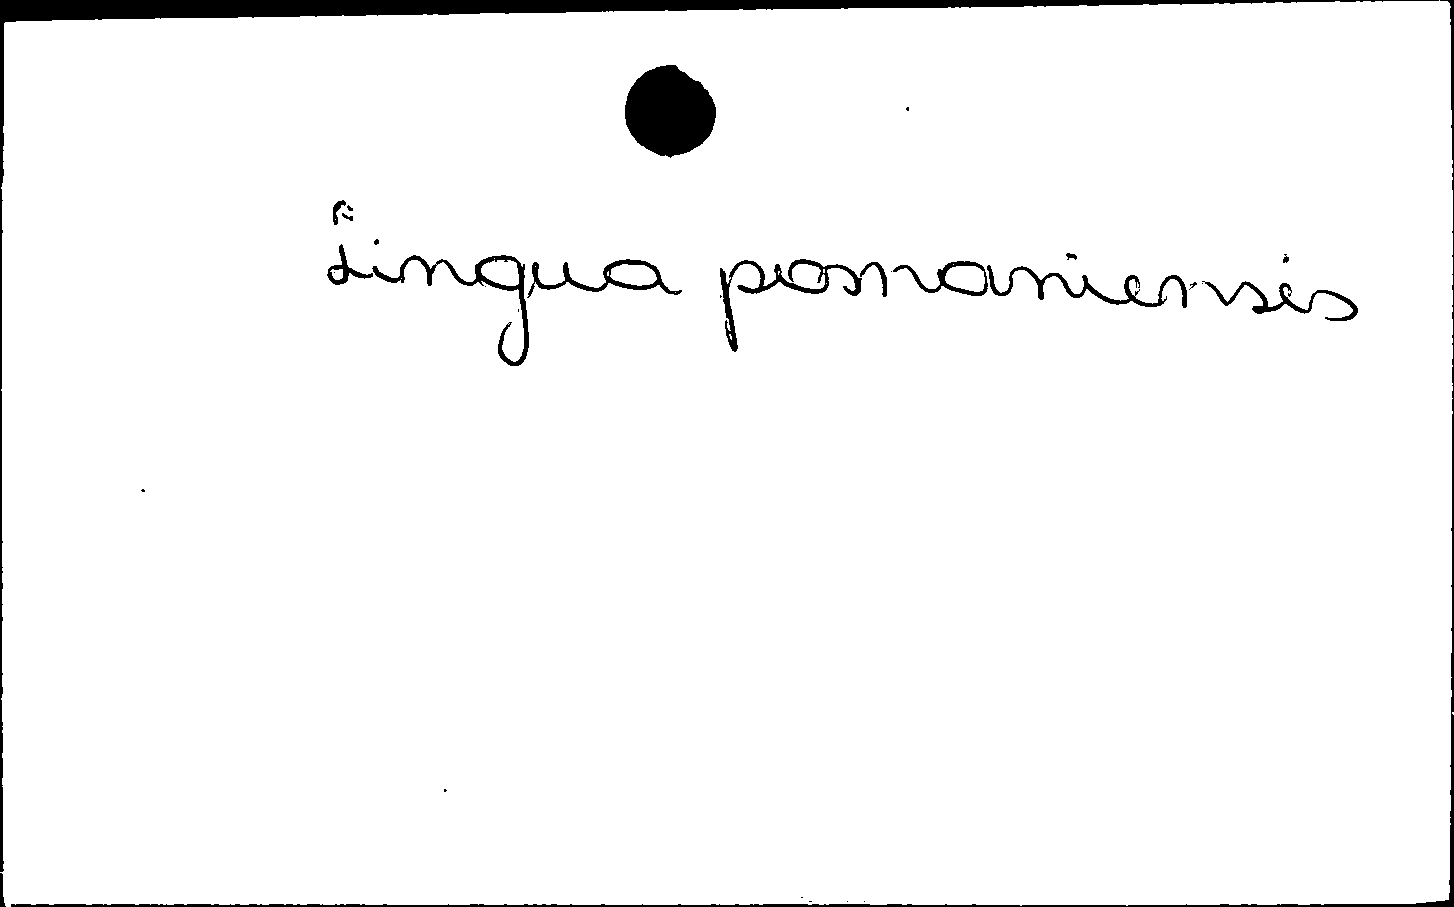 Lingua posnaniensis